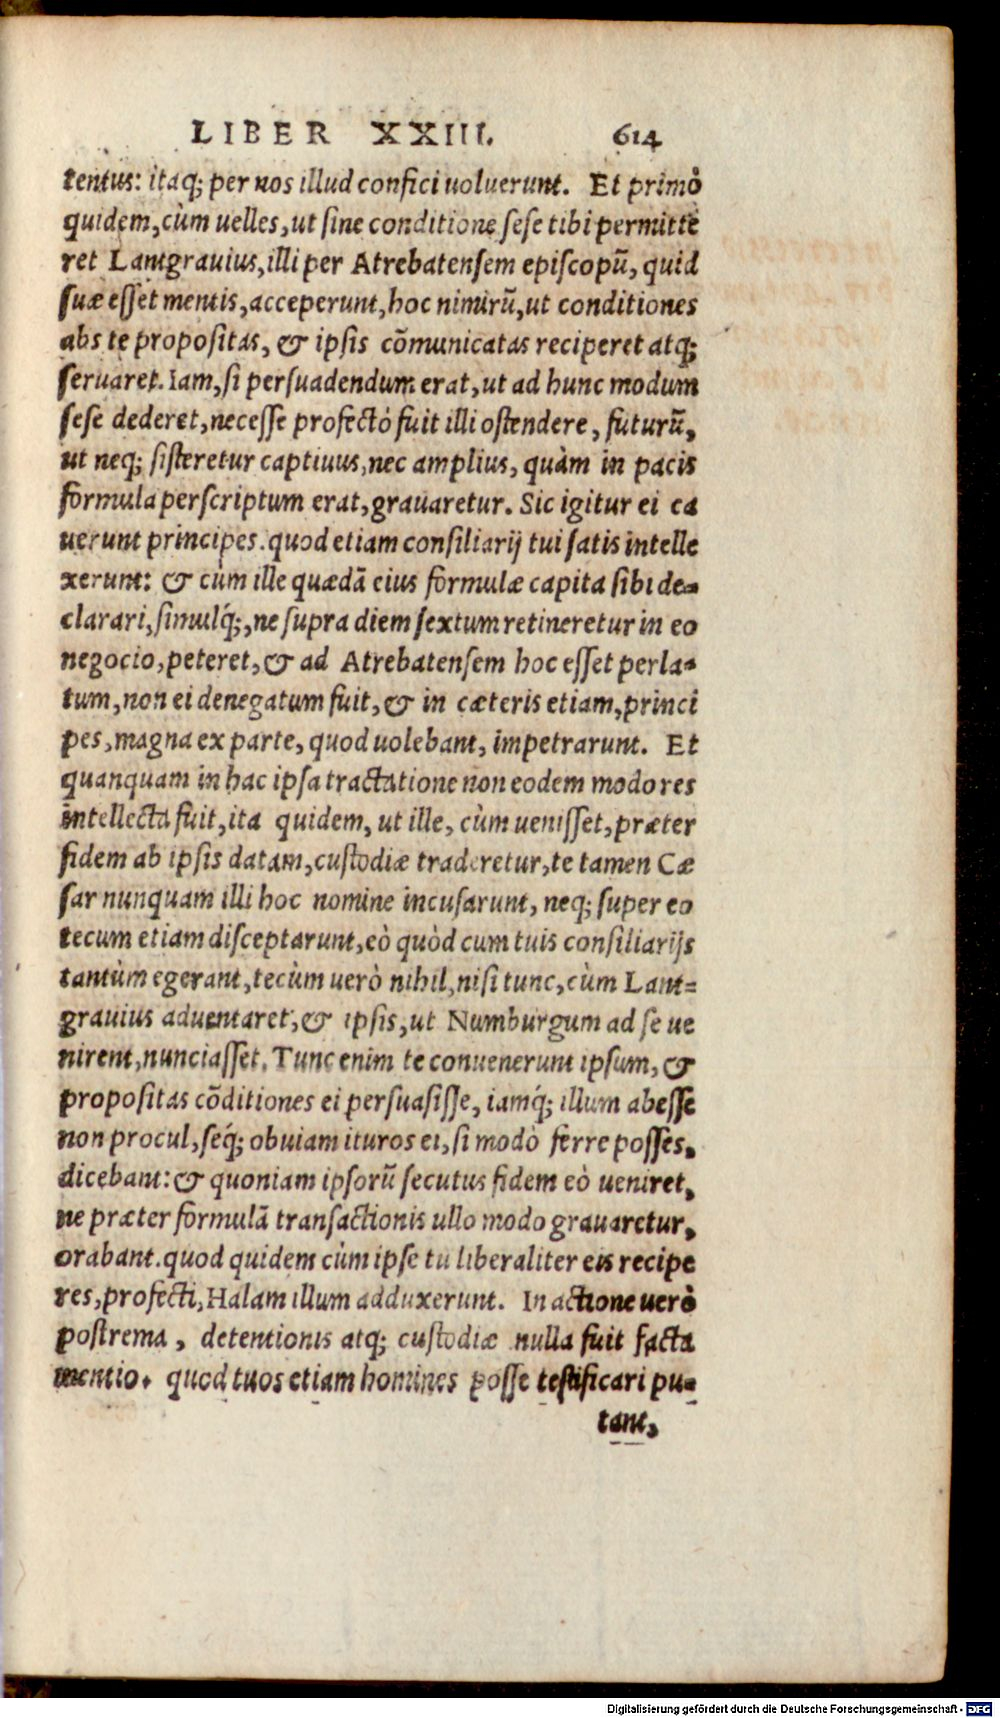 LIBER XXIII. 614
tentus: itaq; per nos illud confici uoluerunt. Et primò
quidem, cùm uelles, ut sine conditione sese tibi permitte
ret Lantgrauius, illi per Atrebatensem episcopũ, quid
suæ esset mentis, acceperunt, hoc nimirũ, ut conditiones
abs te propositas, & ipsis cõmunicatas reciperet atq;
seruaret. Iam, si persuadendum erat, ut ad hunc modum
sese dederet, necesse profectò fuit illi ostendere, futurũ,
ut neq; sisteretur captiuus, nec amplius, quàm in pacis
formula perscriptum erat, grauaretur. Sic igitur ei ca
uerunt principes. quod etiam consiliarij tui satis intelle
xerunt: & cùm ille quædã eius formulæ capita sibi de-
clarari, simulq́;, ne supra diem sextum retineretur in eo
negocio, peteret, & ad Atrebatensem hoc esset perla-
tum, non ei denegatum fuit, & in cæteris etiam, princi
pes, magna ex parte, quod uolebant, impetrarunt. Et
quanquam in hac ipsa tractatione non eodem modo res
intellecta fuit, ita quidem, ut ille, cùm uenisset, præter
fidem ab ipsis datam, custodiæ traderetur, te tamen Cæ
sar nunquam illi hoc nomine incusarunt, neq; super eo
tecum etiam disceptarunt, eò quòd cum tuis consiliarijs
tantùm egerant, tecùm uerò nihil, nisi tunc, cùm Lant-
grauius aduentaret, & ipsis, ut Numburgum ad se ue
nirent, nunciasset. Tunc enim te conuenerunt ipsum, &
propositas cõditiones ei persuasisse, iamq́; illum abesse
non procul, seq́; obuiam ituros ei, si modò ferre posses,
dicebant: & quoniam ipsorũ secutus fidem eò ueniret,
ne præter formulã transactionis ullo modo grauaretur,
orabant. quod quidem cùm ipse tu liberaliter eis recipe
res, profecti, Halam illum adduxerunt. In actione uerò
postrema, detentionis atq; custodiæ nulla fuit facta
mentio. quod tuos etiam homines posse testificari pu-
tant,
Digitalisierung gefördert durch die Deutsche Forschungsgemeinschaft - DFG